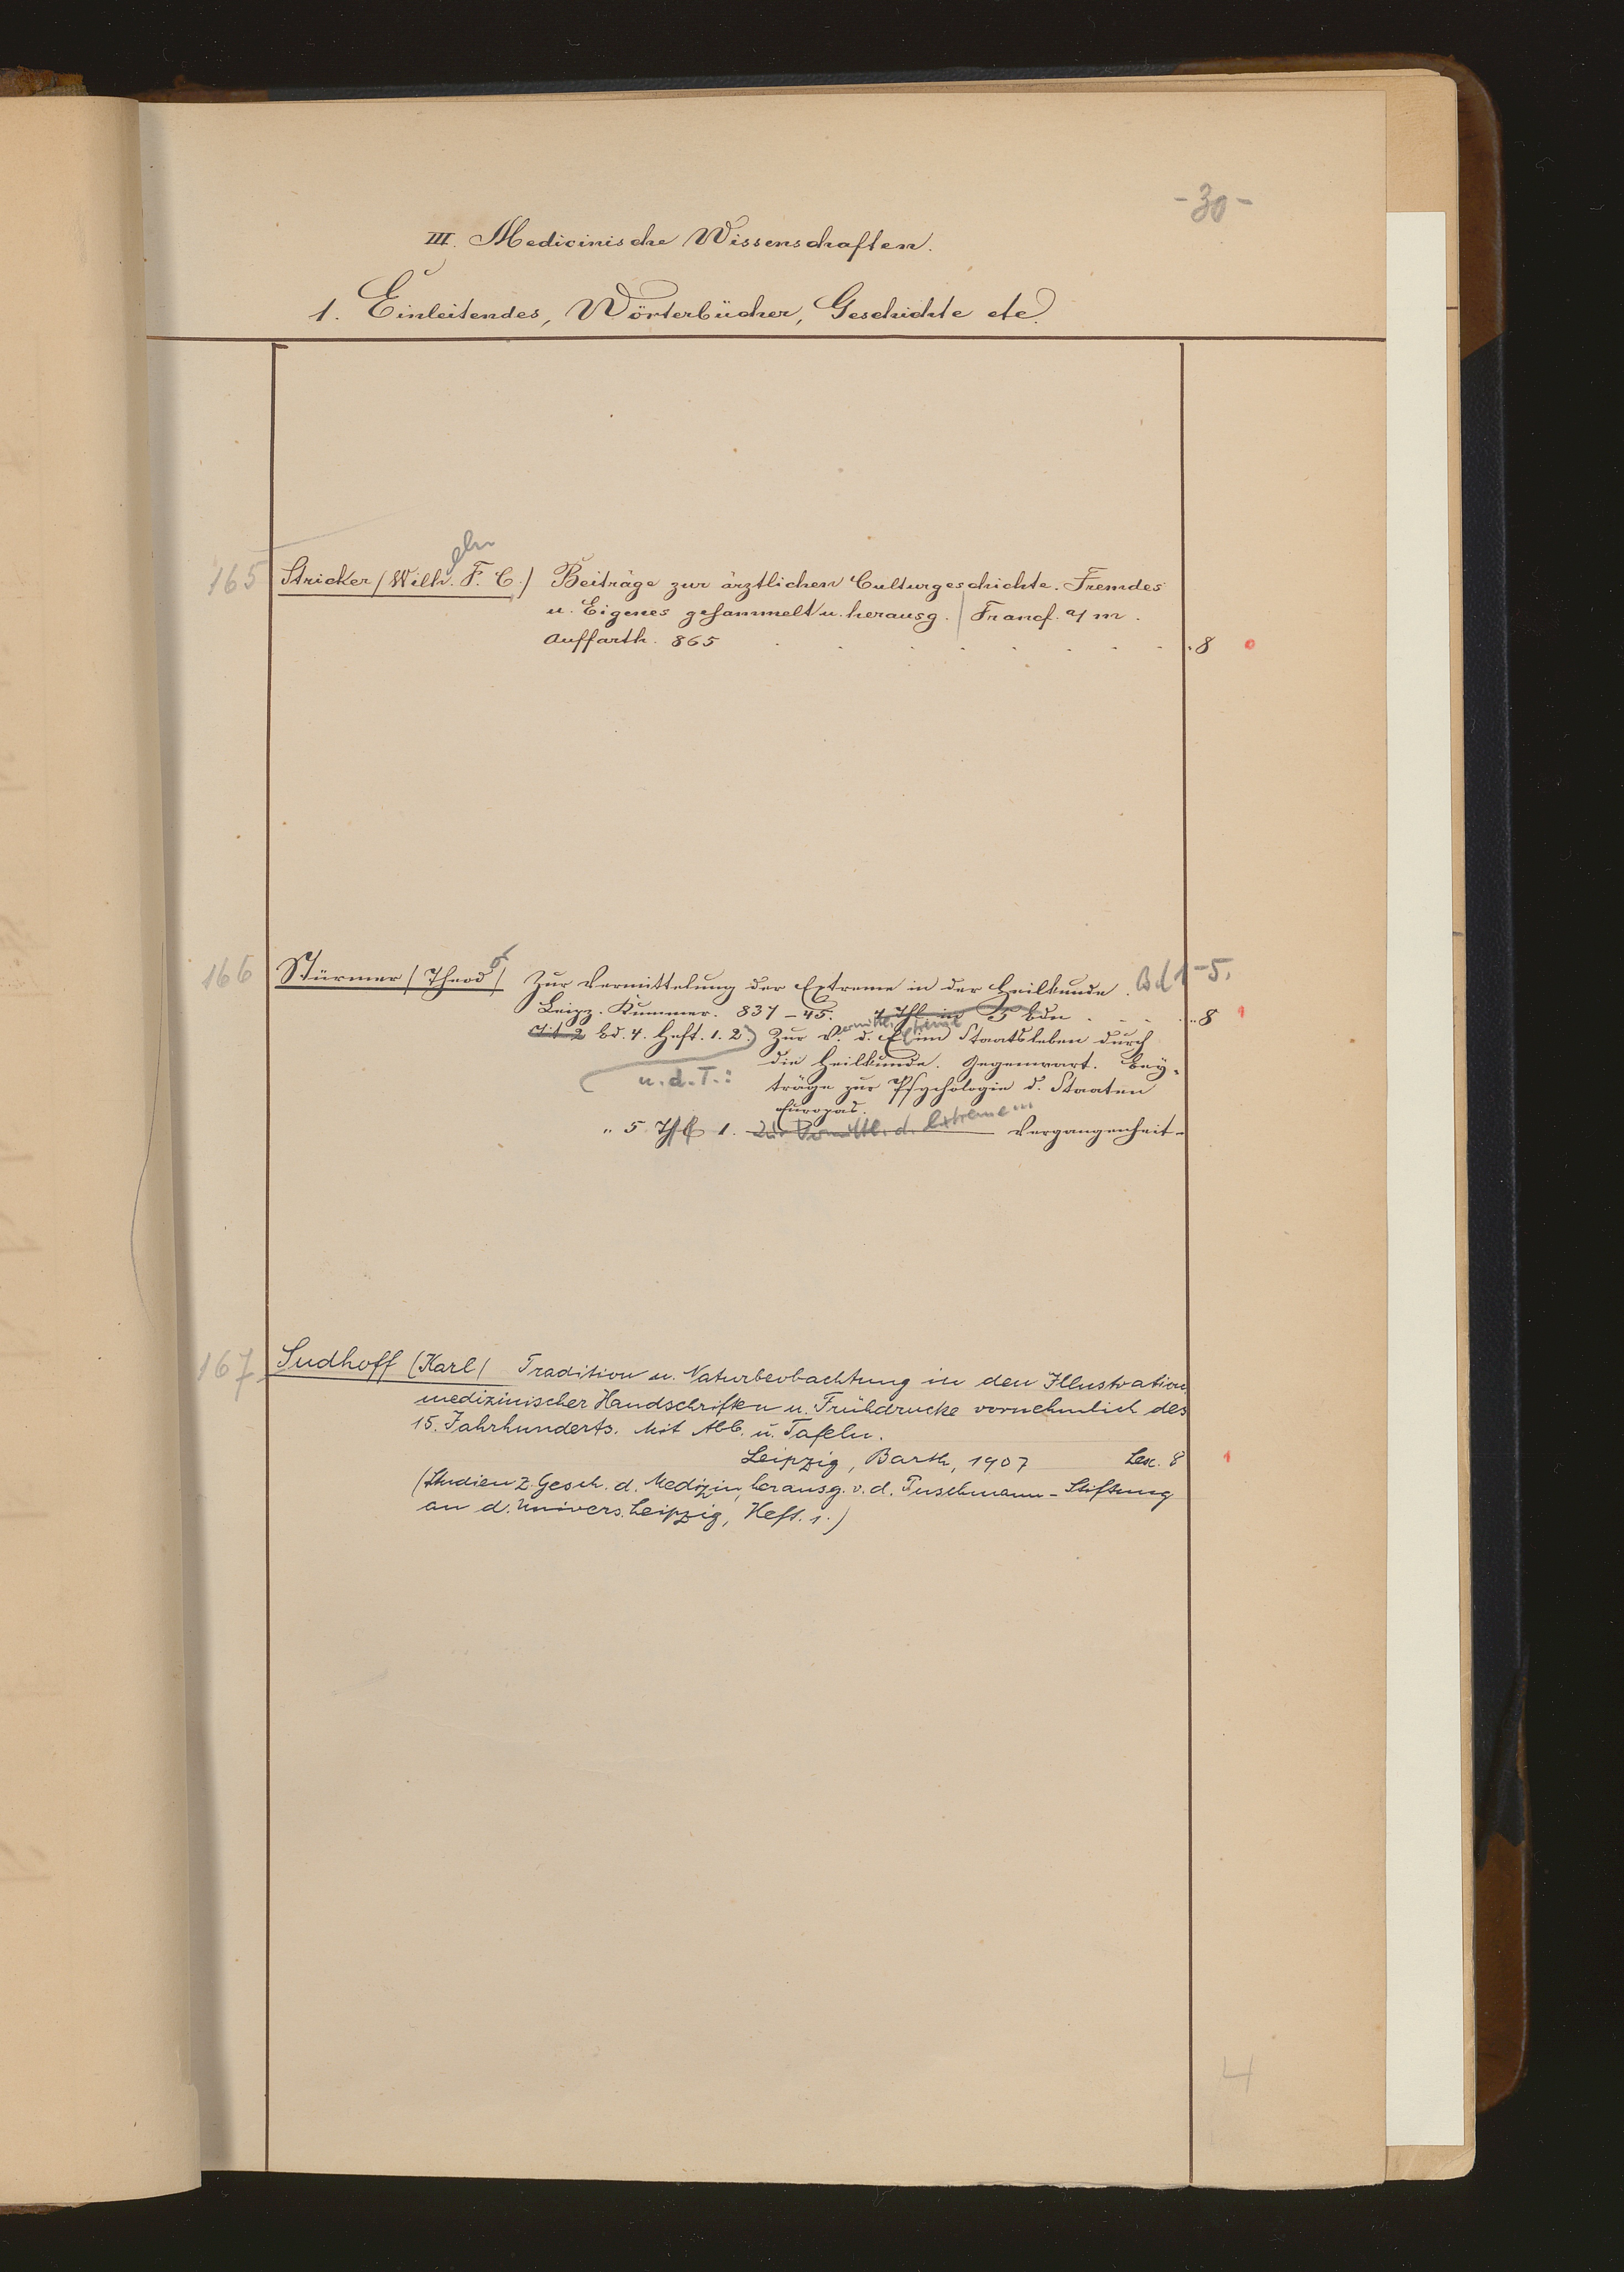 -30-
III. Medicinische Wissenschaften.
1. Einleitendes, Wörterbücher, Geschichte etc.
165 Stricker / Wilh. F. C. / Beiträge zur ärztlichen Culturgeschichte. Fremdes
u. Eigenes gesammelt u. herausg. Francf. a/m.
Auffarth. 865 . . . . . . . . 8 0
166 Stürmer / Theod / Zur Vermittelung der Extreme in der Heilkunde. Bd 1-5.
Leipz. Kummer. 837-45. 4 Thl in 5 Bdn . . . . 8 1
Bd. 4. Heft. 1. 2.) Zur Vermittl. d. Extreme im Staatsleben durch
die Heilkunde. Gegenwart. Bey-
u. d. T.: träge zur Psychologie d. Staaten
Europas.
" 5 1. Zur Vermittl. d. Extreme ... Vergangenheit-
167 Sudhoff (Karl) Tradition u. Naturbeobachtung in den Illustration
medizinischer Handschriften u. Frühdrucke vornehmlich des
15. Jahrhunderts. Mit Abb. u. Tafeln.
Leipzig, Barth, 1907 Lex. 8 1
(Studien z. Gesch. d. Medizin, herausg. v. d. Puschmann-Stiftung
an d. Univers. Leipzig, Heft. 1.)
4